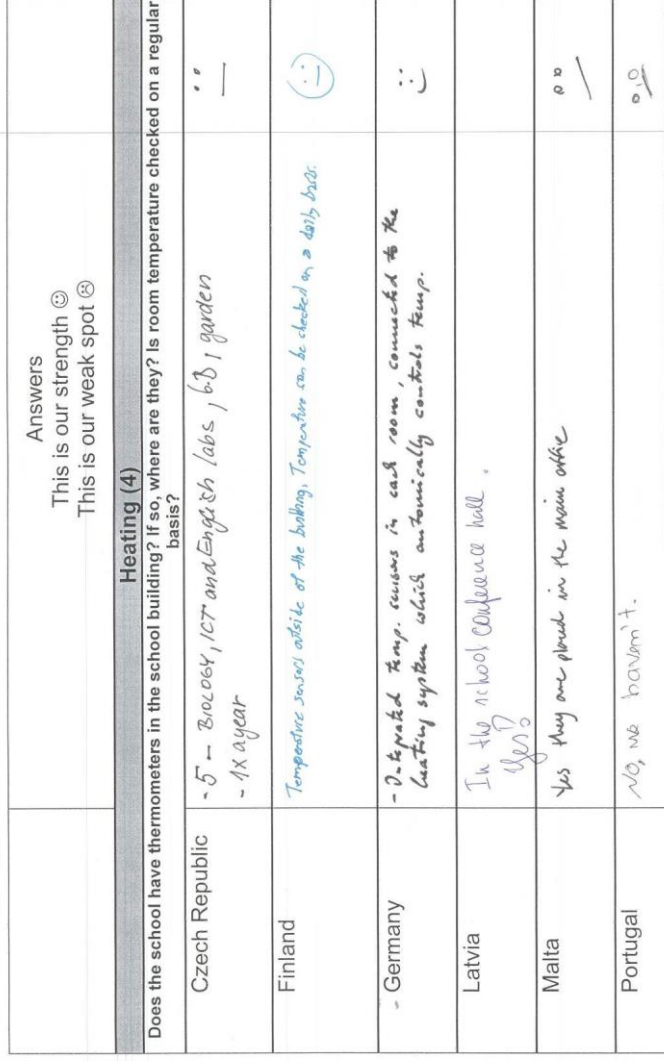 Answers
This is our strength ☺
This is our weak spot ☹
Heating (4)
Does the school have thermometers in the school building? If so, where are they? Is room temperature checked on a regular
basis?
Czech Republic
- 5 – BIOLOGY, ICT and English labs, 6.B, garden
- 1x a year
Finland
Temperature sensors outside of the building, Temperature can be checked on a daily basis.
- Germany
- Integrated temp. sensors in each room, connected to the
heating system which automically controls temp.
Latvia
In the school conference hall.
Yes
Malta
Yes they are placed in the main office
Portugal
No, we haven't.